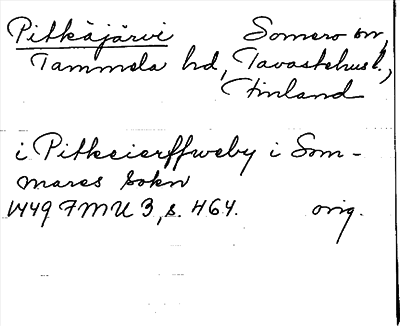 Pitkäjärvi Somero sn,
Tammela hd, Tavastehus l.,
Finland
i Pitkeierffweby i Som-
mares Sokn
1449 FMU 3, s. 464. orig.